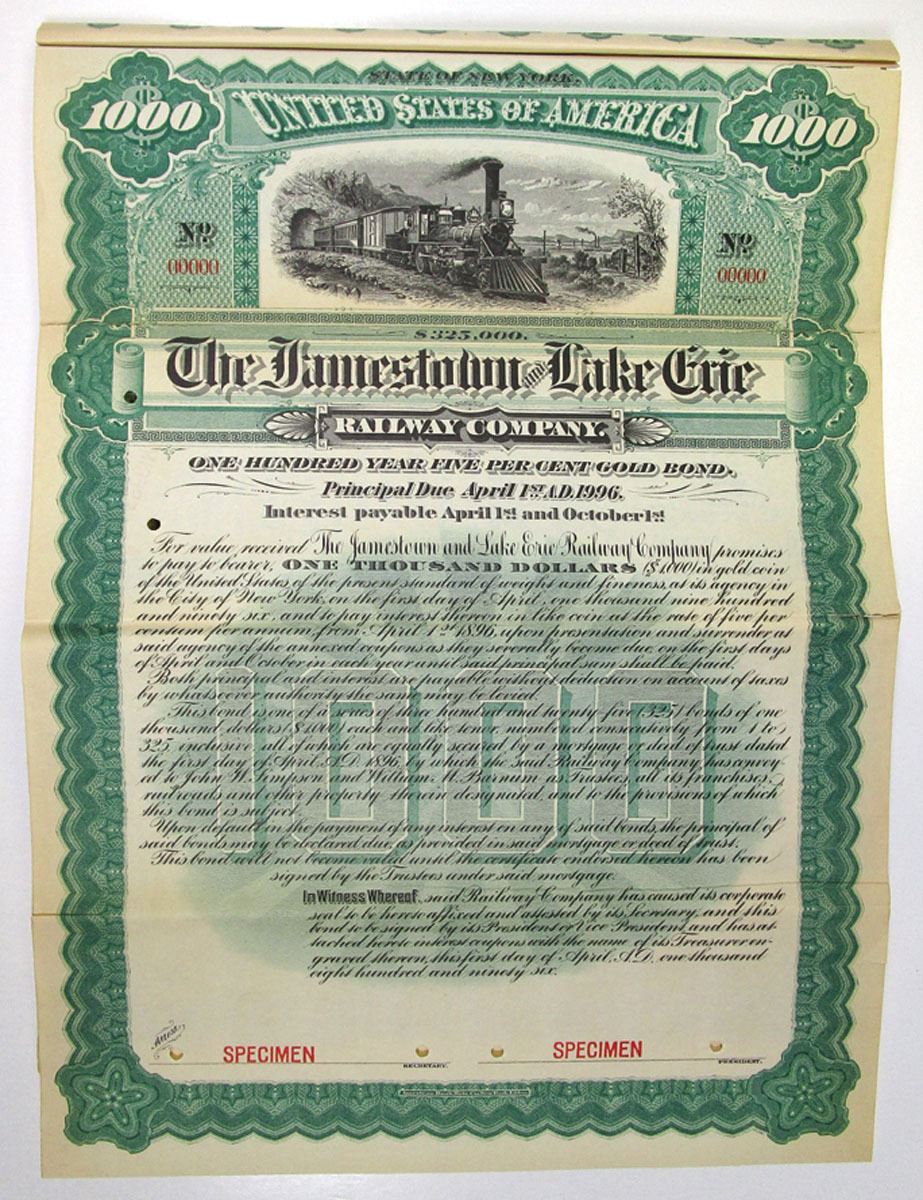 STATE OF NEW YORK.
$1000
UNITED STATES OF AMERICA
$1000
No
00000
No
00000
$325,000.
The Jamestown and Lake Erie
RAILWAY COMPANY.
ONE HUNDRED YEAR FIVE PER CENT GOLD BOND.
Principal Due April 1st A.D. 1996.
Interest payable April 1st and October 1st
For value received The Jamestown and Lake Erie Railway Company promises
to pay to bearer, ONE THOUSAND DOLLARS ($1,000) in gold coin
of the United States of the present standard of weight and fineness, at its agency in
the City of New York, on the first day of April, one thousand nine hundred
and ninety six, and to pay interest thereon in like coin at the rate of five per
centum per annum, from April 1st 1896, upon presentation and surrender at
said agency of the annexed coupons as they severally become due on the first days
of April and October in each year until said principal sum shall be paid.
Both principal and interest are payable without deduction on account of taxes
by whatsoever authority the same may be levied.
This bond is one of a series of three hundred and twenty-five (325) bonds of one
thousand dollars ($1,000) each and like tenor, numbered consecutively from 1 to
325, inclusive, all of which are equally secured by a mortgage or deed of trust dated
the first day of April, A.D. 1896, by which the said Railway Company has convey-
ed to John W. Simpson and William M. Barnum as Trustees, all its franchises,
railroads and other property therein designated, and to the provisions of which
this bond is subject.
Upon default in the payment of any interest on any of said bonds, the principal of
said bonds may be declared due, as provided in said mortgage or deed of trust.
This bond will not become valid until the certificate endorsed hereon has been
signed by the Trustees under said mortgage.
In Witness Whereof, said Railway Company has caused its corporate
seal to be hereto affixed and attested by its Secretary, and this
bond to be signed by its President or Vice President, and has at-
tached hereto interest coupons with the name of its Treasurer en-
graved thereon, this first day of April, A.D. one thousand
eight hundred and ninety six.
1000
Attest
SPECIMEN
SPECIMEN
SECRETARY.
PRESIDENT.